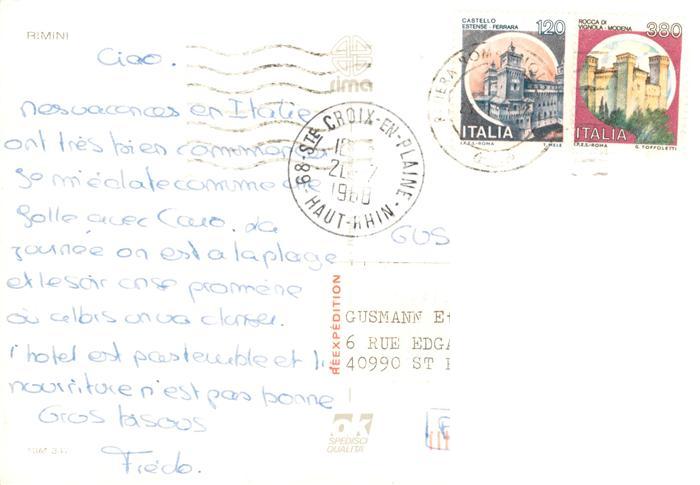 RIMINI
Ciao.
rima
CASTELLO
ESTENSE - FERRARA
120
ITALIA
I.P.Z.S.-ROMA
T. MELE
ROCCA DI
VIGNOLA - MODENA
380
ITALIA
I.P.Z.S.-ROMA
G. TOFFOLETTI
68-STE CROIX-EN-PLAINE
HAUT-RHIN
Mes vacances en Italie
ont très bien commencées
Je m'éclate comme une
folle avec Caro. La
journée on est à la plage
et le soir on se promène
où alors on va danser.
l'hotel est pas terrible et la
nourriture n'est pas bonne
Gros bisous
Frédo.
GUS
RÉEXPÉDITION
GUSMANN Et
6 RUE EDGA
40990 ST
ok
SPEDISCI
QUALITÀ